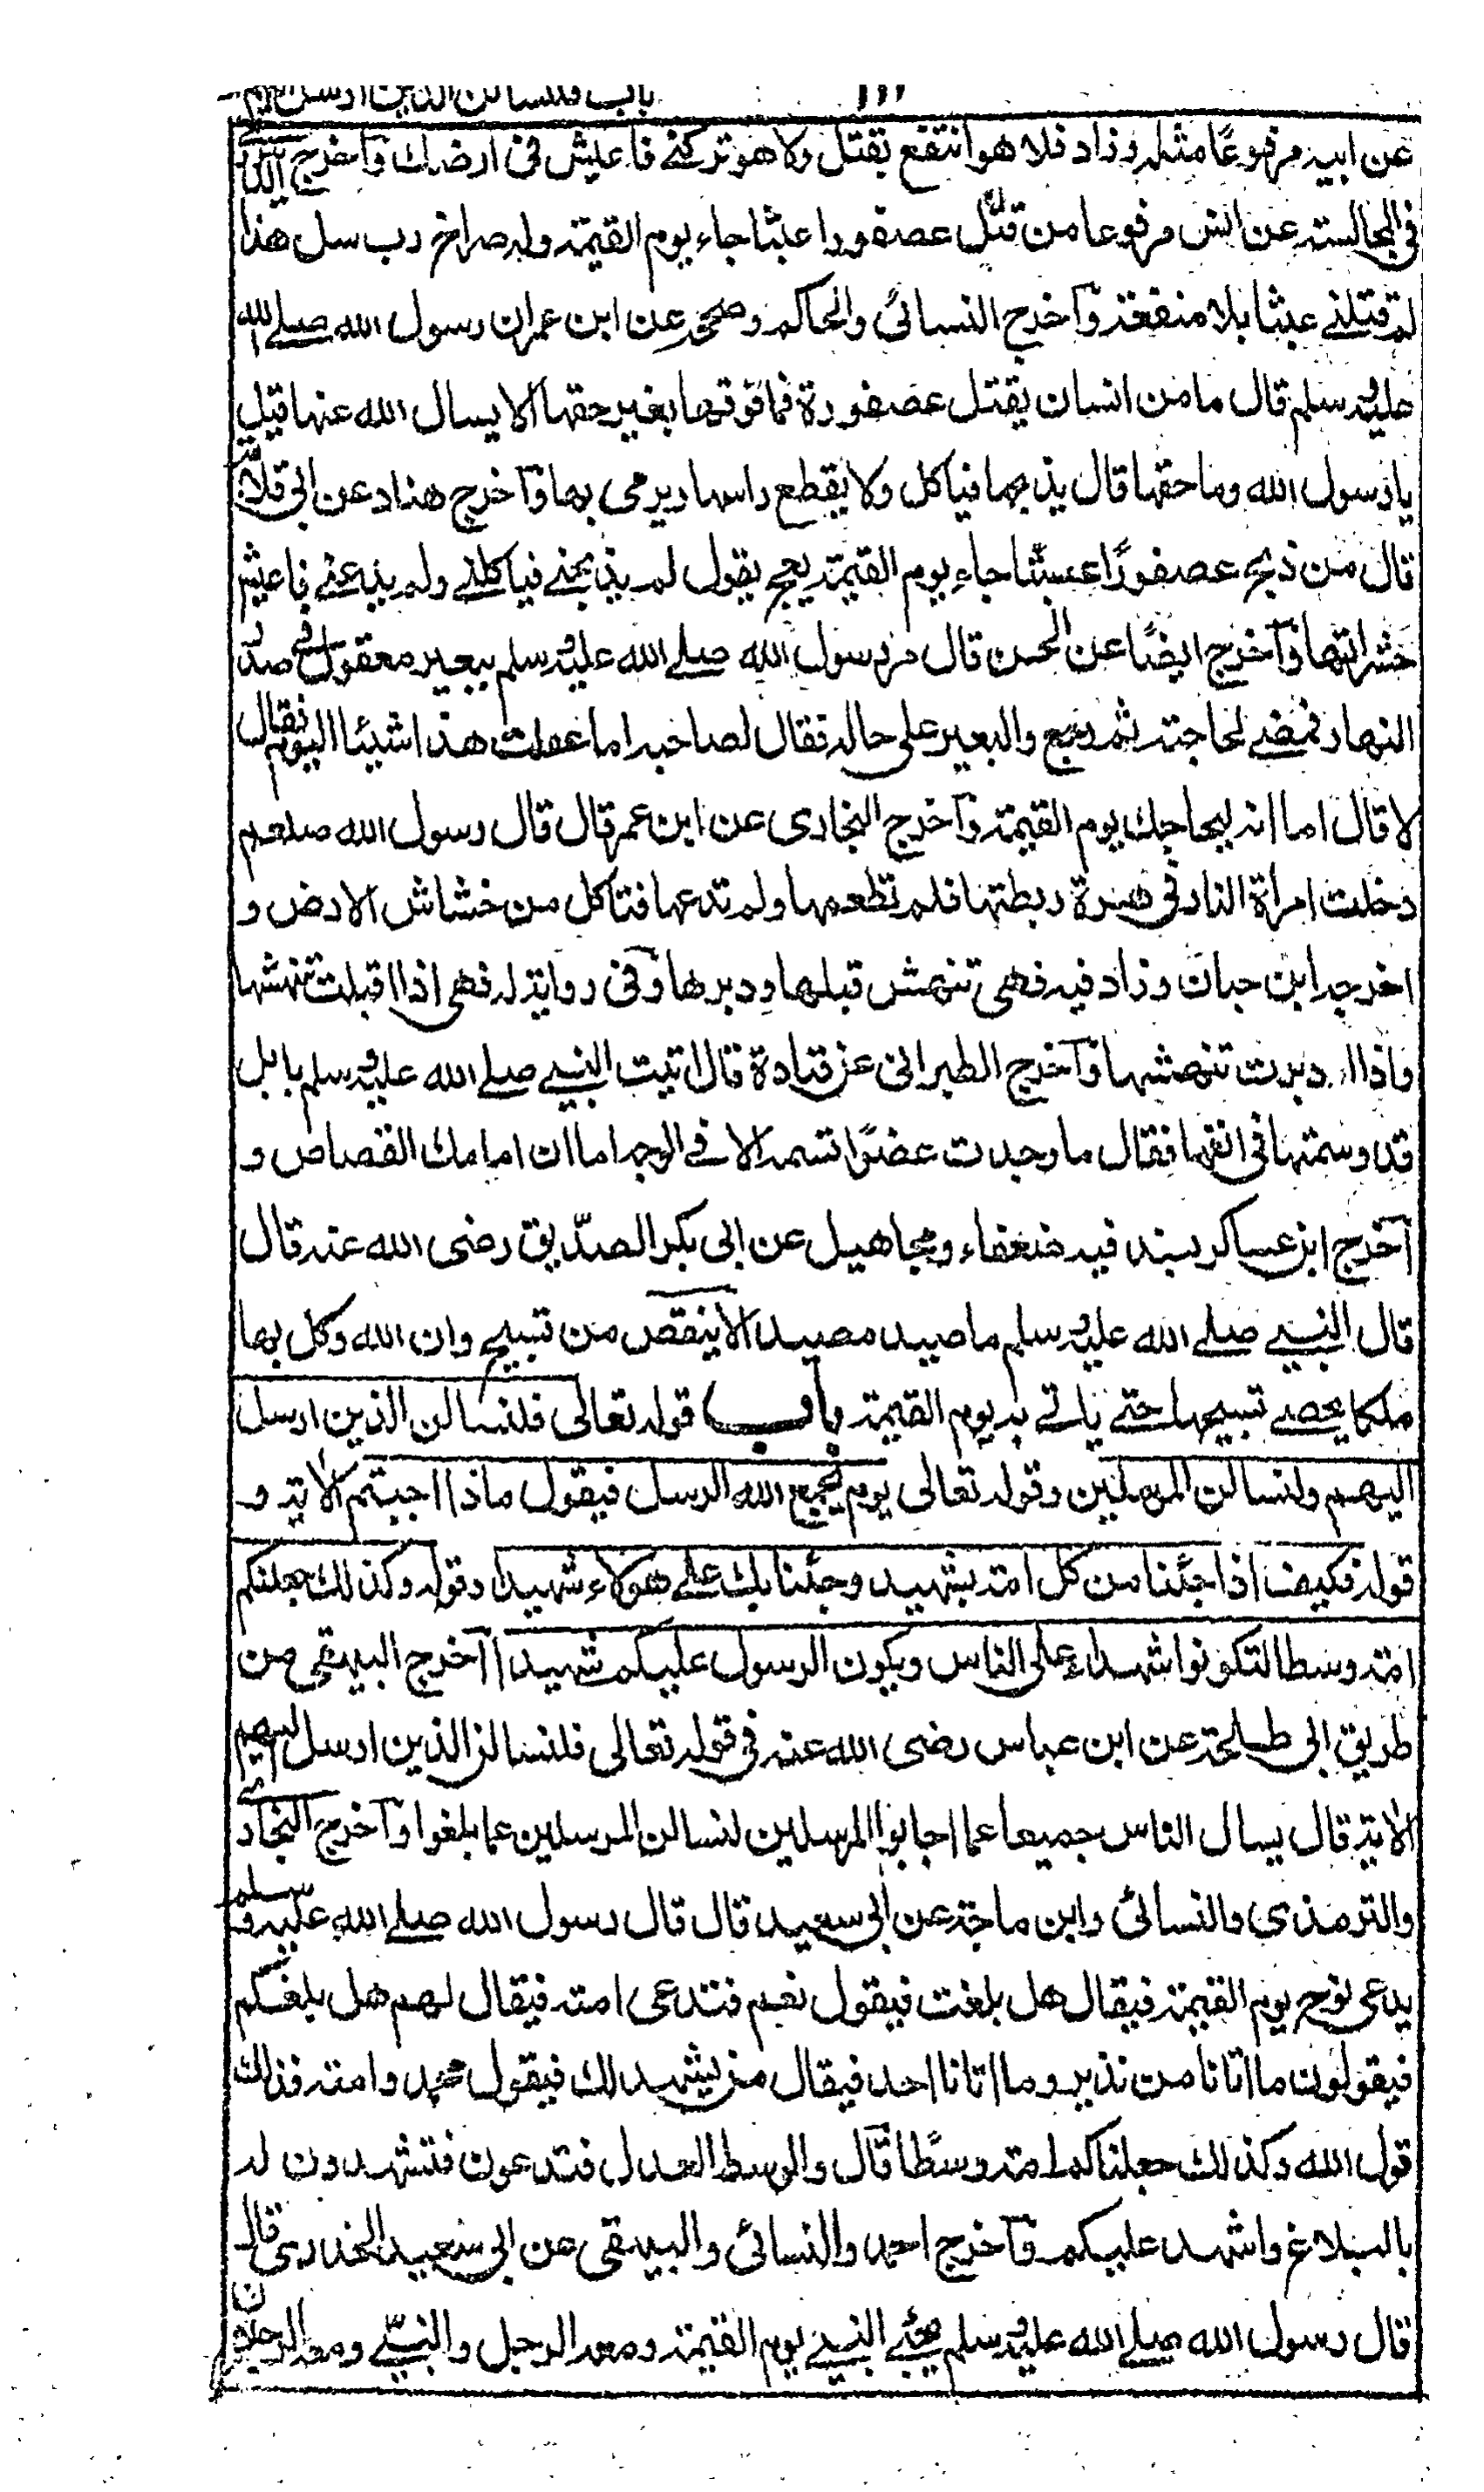 باب فلنسألن الذين ارسل اليهم ١١١
عن ابيه مرفوعًا مثله وزاد فلا هو انتفع بقتلي ولا هو تركني فاعيش في ارضك وآخرج الدينوري
في المجالسة عن انس مرفوعا من قتل عصفورا عبثا جاء يوم القيمة وله صراخ رب سل هذا
لم قتلني عبثا بلا منفعة وآخرج النسائي والحاكم وصححه عن ابن عمران رسول الله صلے الله
عليه وسلم قال ما من انسان يقتل عصفورة فما فوقها بغير حقها الا يسال الله عنها قيل
يا رسول الله وما حقها قال يذبحها فياكل ولا يقطع راسها ويرمى بها وآخرج هناد عن ابي قلابة
قال من ذبح عصفورًا عبثا جاء يوم القيمة يعج يقول لم يذبحنے فياكلنے ولم يدعنے فاعيش
حشراتها وآخرج ايضًا عن الحسن قال مر رسول الله صلے الله عليه وسلم ببعير معقول في صدر
النهار فمضے لحاجته ثم رجع والبعير على حاله فقال لصاحبه اما عقلت هذا شيئا اليوم فقال
لا قال اما انه ليحاجك يوم القيمة وآخرج البخارى عن ابن عمر قال قال رسول الله صلعم
دخلت امراة النار في هرة ربطتها فلم تطعمها ولم تدعها فتاكل من خشاش الارض و
اخرجه ابن حبان وزاد فيه فهى تنهش قبلها ودبرها وفى رواية له فهى اذا اقبلت تنهشها
واذا ادبرت تنهشها وآخرج الطبرانى عن قتادة قال اتيت النبے صلے الله عليه وسلم بابل
قد وسمتها في انفها فقال ما وجدت عضوًا تسمه الا فے الوجه اما ان امامك القصاص و
آخرج ابن عساكر بسند فيه ضعفاء ومجاهيل عن ابى بكر الصدّيق رضى الله عنه قال
قال النبے صلے الله عليه وسلم ما صيد مصيد الا بنقص من تسبيح وان الله وكل بها
ملكا يحصے تسبيحها حتے ياتے به يوم القيمة باب قوله تعالى فلنسالن الذين ارسل
اليهم ولنسالن المرسلين وقوله تعالى يوم يجمع الله الرسل فيقول ماذا اجبتم الاية و
قوله فكيف اذا جئنا من كل امة بشهيد وجئنا بك علے هؤلاء شهيدا وقوله وكذلك جعلنكم
امة وسطا لتكونوا شهداء على الناس ويكون الرسول عليكم شهيدا آخرج البيهقى من
طريق ابى طلحة عن ابن عباس رضى الله عنه في قوله تعالى فلنسالن الذين ارسل اليهم
الاية قال يسال الناس جميعا عما اجابوا المرسلين لنسالن المرسلين عما بلغوا وآخرج البخارى
والترمذى والنسائى وابن ماجة عن ابى سعيد قال قال رسول الله صلے الله عليه وسلم
يدعى نوح يوم القيمة فيقال هل بلغت فيقول نعم فتدعى امته فيقال لهم هل بلغكم
فيقولون ما اتانا من نذير وما اتانا احد فيقال من يشهد لك فيقول محمد وامته فذلك
قول الله وكذلك جعلناكم امة وسطًا قال والوسط العدل فتدعون فتشهدون له
بالبلاغ واشهد عليكم وآخرج احمد والنسائى والبيهقى عن ابى سعيد الخدرى قال
قال رسول الله صلے الله عليه وسلم يجئ النبے يوم القيمة ومعه الرجل والنبّے ومعه الرجلان